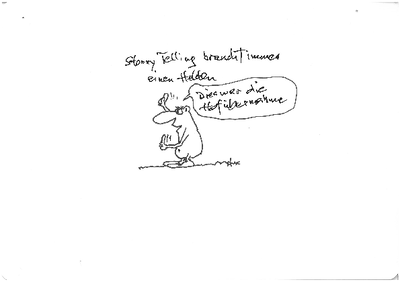 Story Telling braucht immer
einen Helden
Dies war die
Hofübernahme